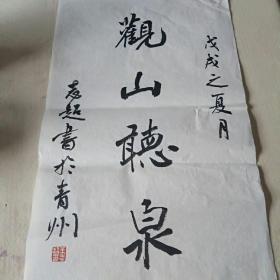 戊戌之夏月
觀山聽泉
志超書於青州